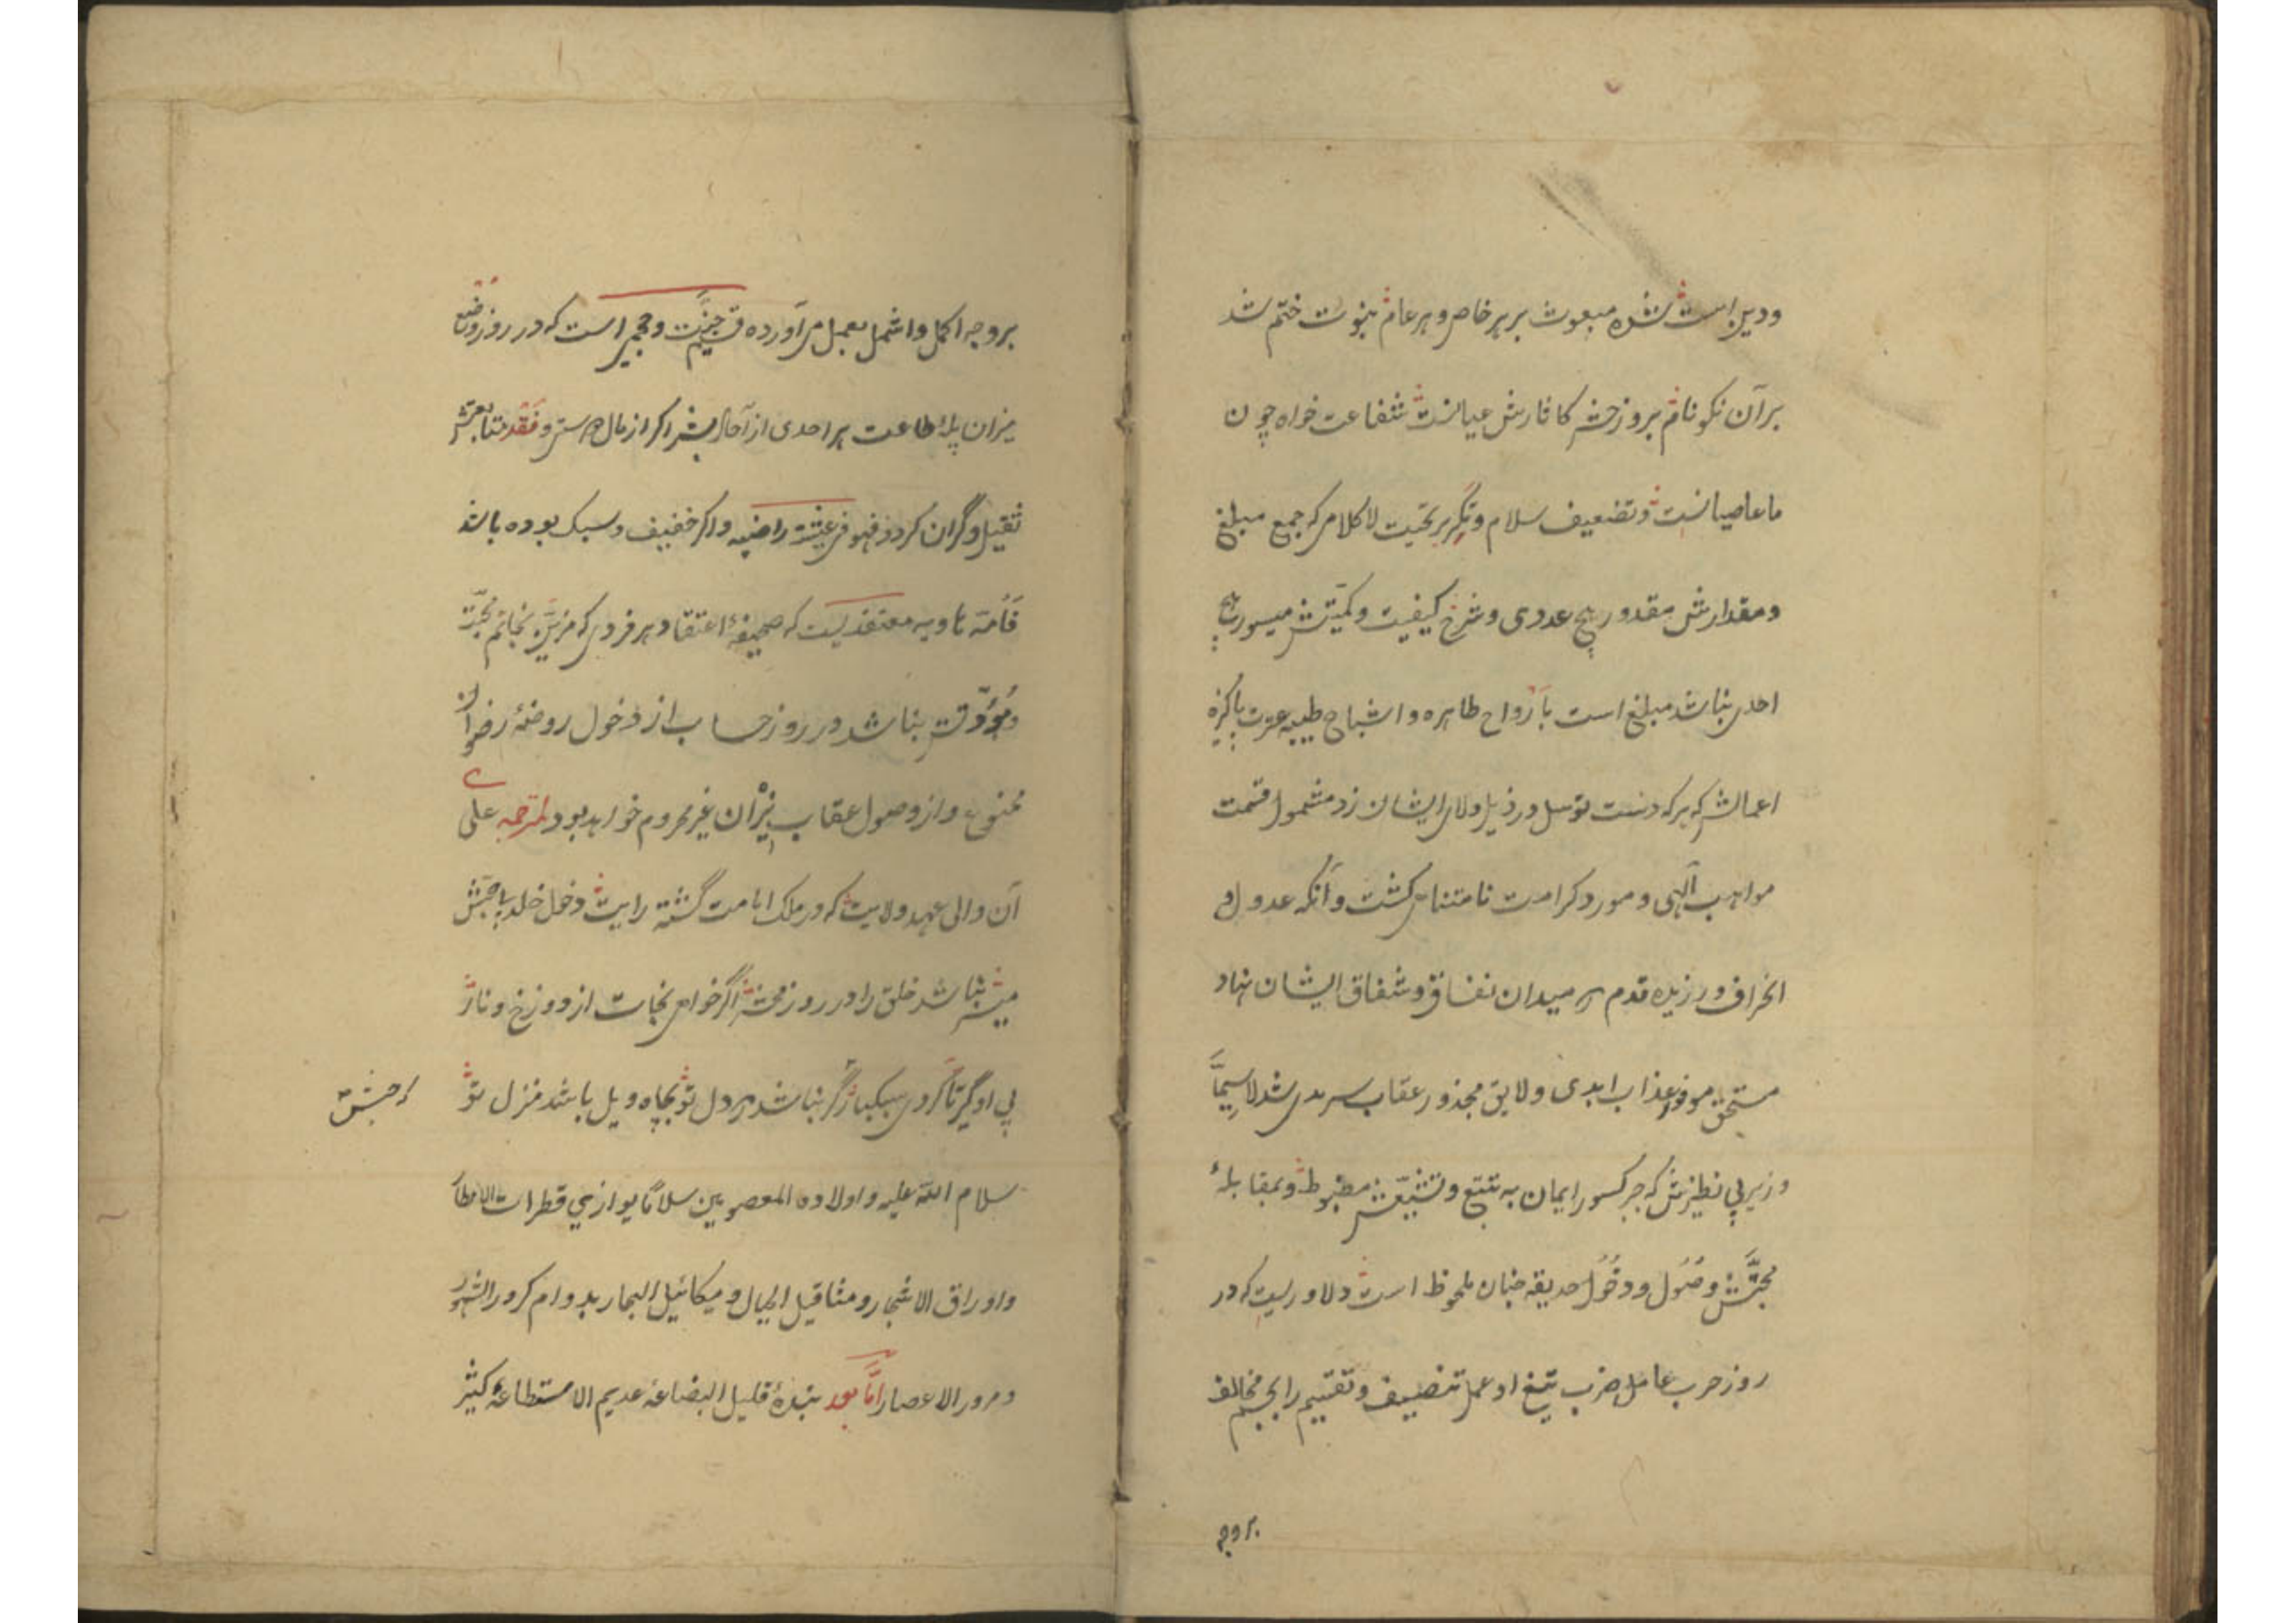 ودین است شده مبعوث بر هر خاص و هر عام نبوت ختم شد
بر آن نکو نام بروز حشر کاثارش عیانست شفاعت خواه چون
ما عاصیانست و تضعیف سلام و تکریر تحیت لا کلامی که جمع مبلغ
و مقدارش مقدور هیچ عددی و شرح کیفیت و کمیتش میسور هیچ
احدی نباشد مبلغ است بارواح طاهره و اشباح طیبه عترت پاکیزه
اعمالش که هر که دست توسل در ذیل ولای ایشان زد مشمول قسمت
مواهب آلهی و مورد کرامت نامتناهی کشت و آنکه عدول و
انحراف ورزیده قدم در میدان نفاق و شقاق ایشان نهاد
مستحق موفور عذاب ابدی و لایق مجذور عقاب سرمدی شد لاسیما
وزیر بی نظیرش که جبر کسور ایمان به تتبع و تشیعش مضبوط و بمقابلهٔ
محبتش وصول و دخول حدیقه جنان ملحوظ است دلاوریست که در
روز حرب عامل ضرب تیغ او عمل تنصیف و تقسیم را بجسم مخالف
بروجه
بروجه اکمل و اشمل بعمل می آورده قسیم جنت و جحیم است که در روز وضع
میزان پلهٔ طاعت هر احدی از آحاد بشر اکر از مال و نقد متابعتش
ثقیل و گران کردد فهو فی عیشة راضیه و اکر خفیف و سبک بوده باشد
فامه هاویه معتقدیست که صحیفهٔ اعتقاد هر فردی که مزین بخاتم محبت
و مودتش نباشد در روز حساب از دخول روضهٔ رضوان
ممنوع و از وصول عقاب نیران غیر محروم خواهد بود لمترجمه علی
آن والی عهد ولایت که در ملک امامت گشته رایت دخول خلد با حبش
میسر نباشد خلق را در روز محشر اگر خواهی نجات از دوزخ و نار
پی او گیر تا کردی سبکبار گر نباشد در دل تو بچاه ویل باشد منزل تو
حبش
سلام الله علیه و اولاده المعصومین سلاما یوازی قطرات الامطار
و اوراق الاشجار و مثاقیل الجبال و میکائیل البحار بدوام کرور الشهور
و مرور الاعصار اما بعد بندهٔ قلیل البضاعه عدیم الاستطاعه کثیر